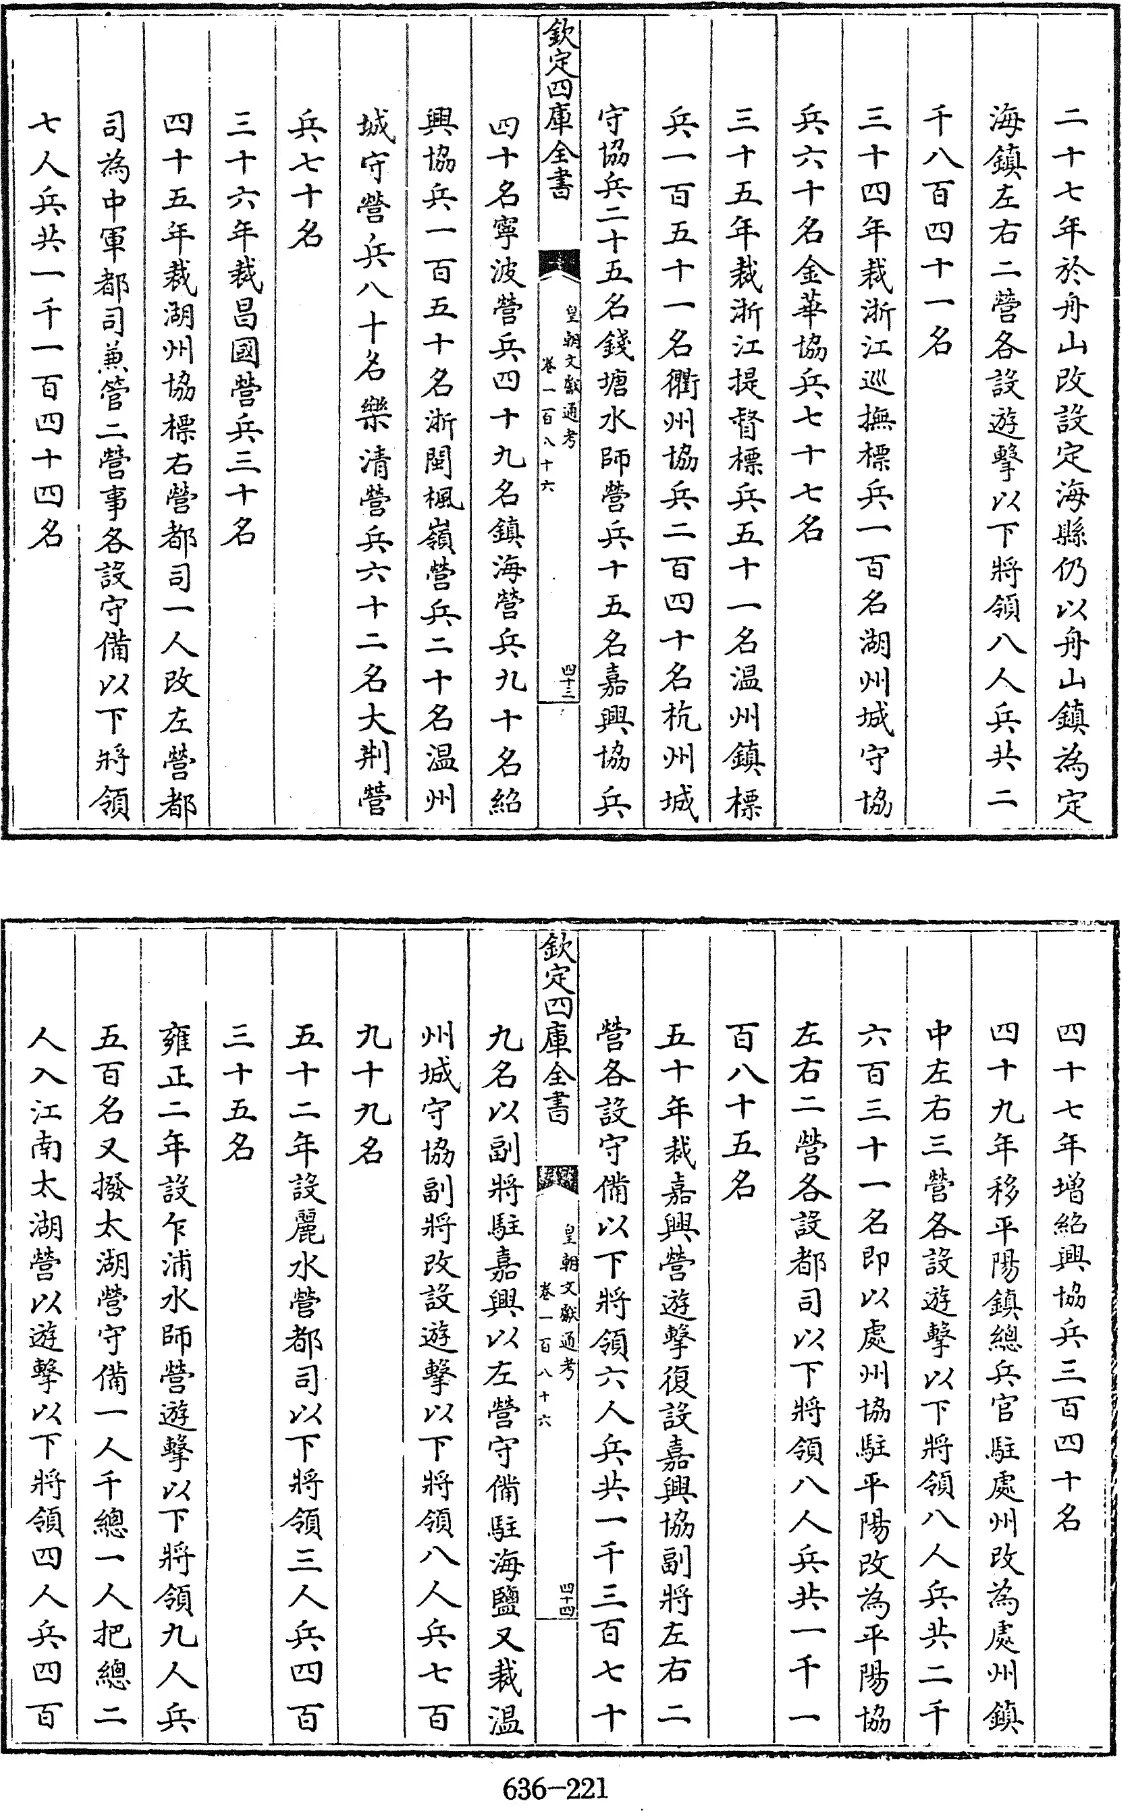 二十七年於舟山改設定海縣仍以舟山鎮為定
海鎮左右二營各設遊擊以下將領八人兵共二
千八百四十一名
三十四年裁浙江巡撫標兵一百名湖州城守協
兵六十名金華協兵七十七名
三十五年裁浙江提督標兵五十一名温州鎮標
兵一百五十一名衢州協兵二百四十名杭州城
守協兵二十五名錢塘水師營兵十五名嘉興協兵
欽定四庫全書
皇朝文獻通考
卷一百八十六
四十三
四十名寧波營兵四十九名鎮海營兵九十名紹
興協兵一百五十名浙閩楓嶺營兵二十名温州
城守營兵八十名樂清營兵六十二名大荆營
兵七十名
三十六年裁昌國營兵三十名
四十五年裁湖州協標右營都司一人改左營都
司為中軍都司兼管二營事各設守備以下將領
七人兵共一千一百四十四名
四十七年增紹興協兵三百四十名
四十九年移平陽鎮總兵官駐處州改為處州鎮
中左右三營各設遊擊以下將領八人兵共二千
六百三十一名即以處州協駐平陽改為平陽協
左右二營各設都司以下將領八人兵共一千一
百八十五名
五十年裁嘉興營遊擊復設嘉興協副將左右二
營各設守備以下將領六人兵共一千三百七十
欽定四庫全書
皇朝文獻通考
卷一百八十六
四十四
九名以副將駐嘉興以左營守備駐海鹽又裁温
州城守協副將改設遊擊以下將領八人兵七百
九十九名
五十二年設麗水營都司以下將領三人兵四百
三十五名
雍正二年設乍浦水師營遊擊以下將領九人兵
五百名又撥太湖營守備一人千總一人把總二
人入江南太湖營以遊擊以下將領四人兵四百
636-221